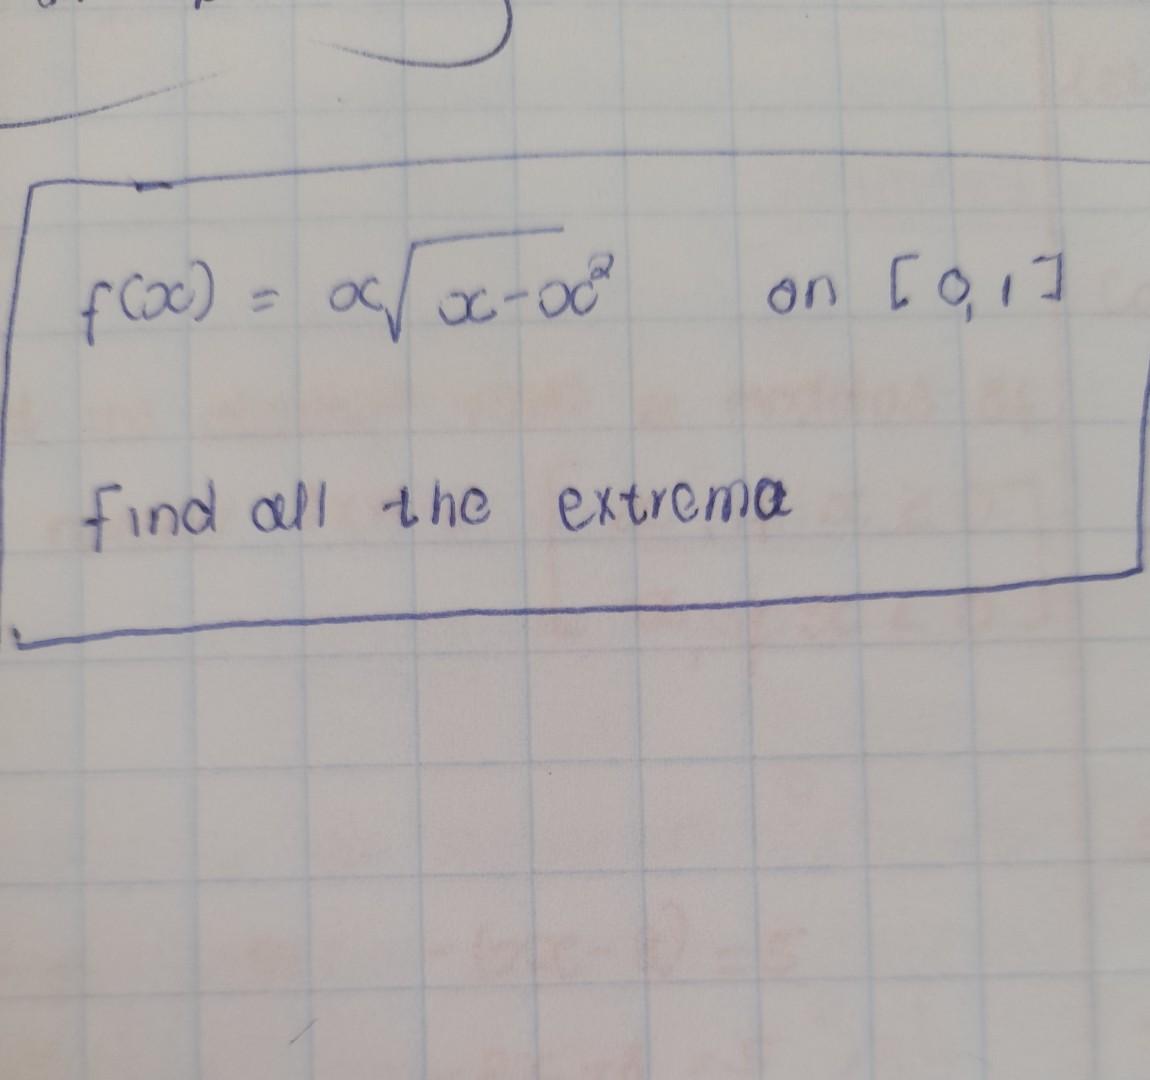 f(x) = x√x-x² on [0,1]
Find all the extrema